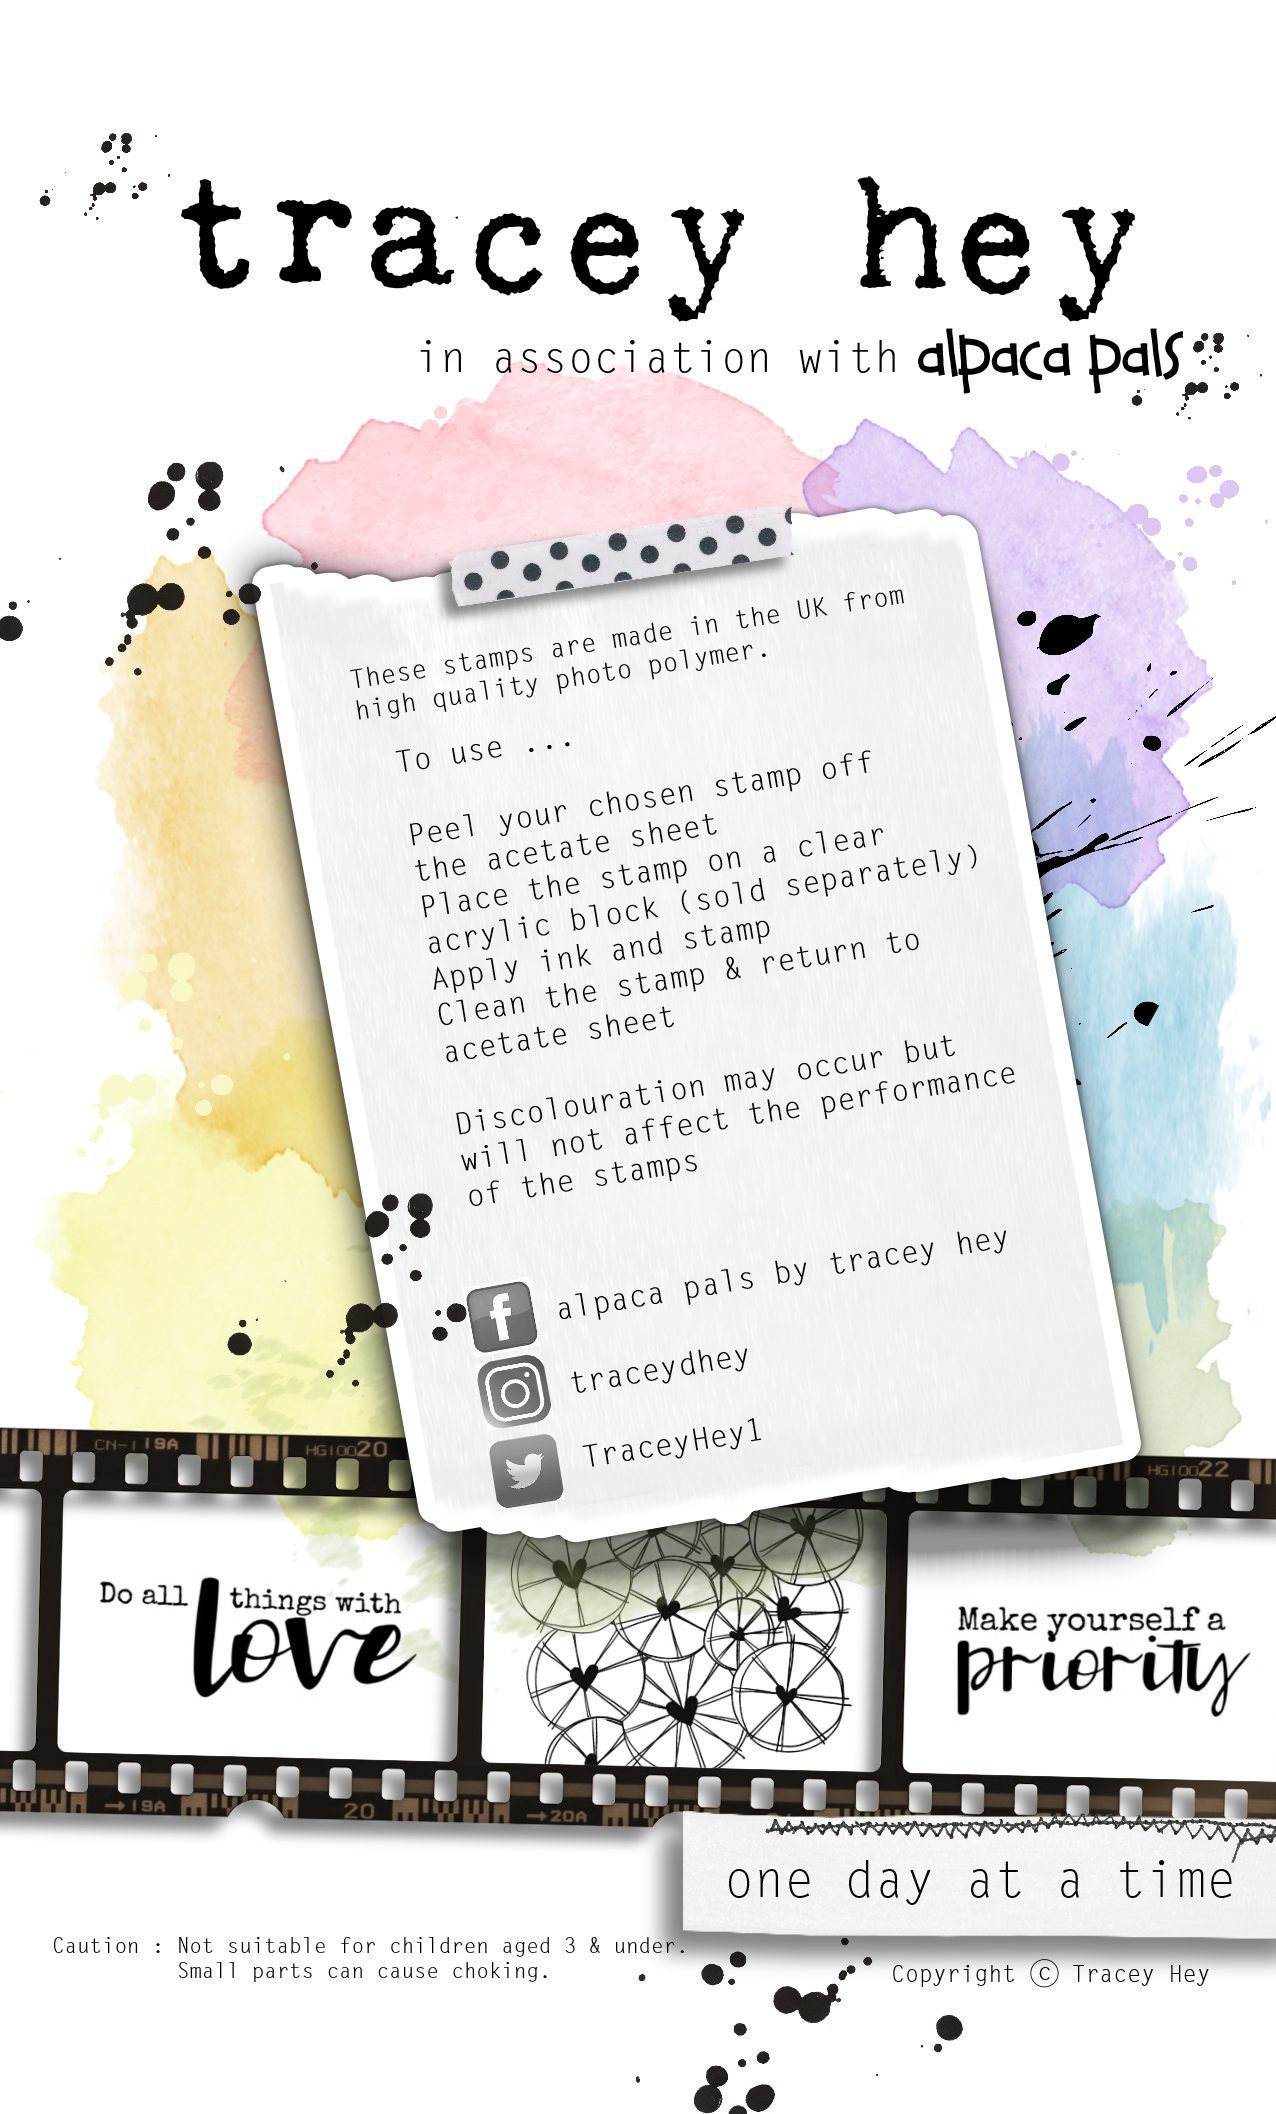 tracey hey
in association with alpaca pals
These stamps are made in the UK from
high quality photo polymer.
To use ...
Peel your chosen stamp off
the acetate sheet
Place the stamp on a clear
acrylic block (sold separately)
Apply ink and stamp
Clean the stamp & return to
acetate sheet
Discolouration may occur but
will not affect the performance
of the stamps
alpaca pals by tracey hey
traceydhey
TraceyHey1
CN-1 19A
HG10020
HG10022
Do all things with
love
Make yourself a
priority
→19A
20
→20A
one day at a time
Caution : Not suitable for children aged 3 & under.
Small parts can cause choking.
Copyright © Tracey Hey